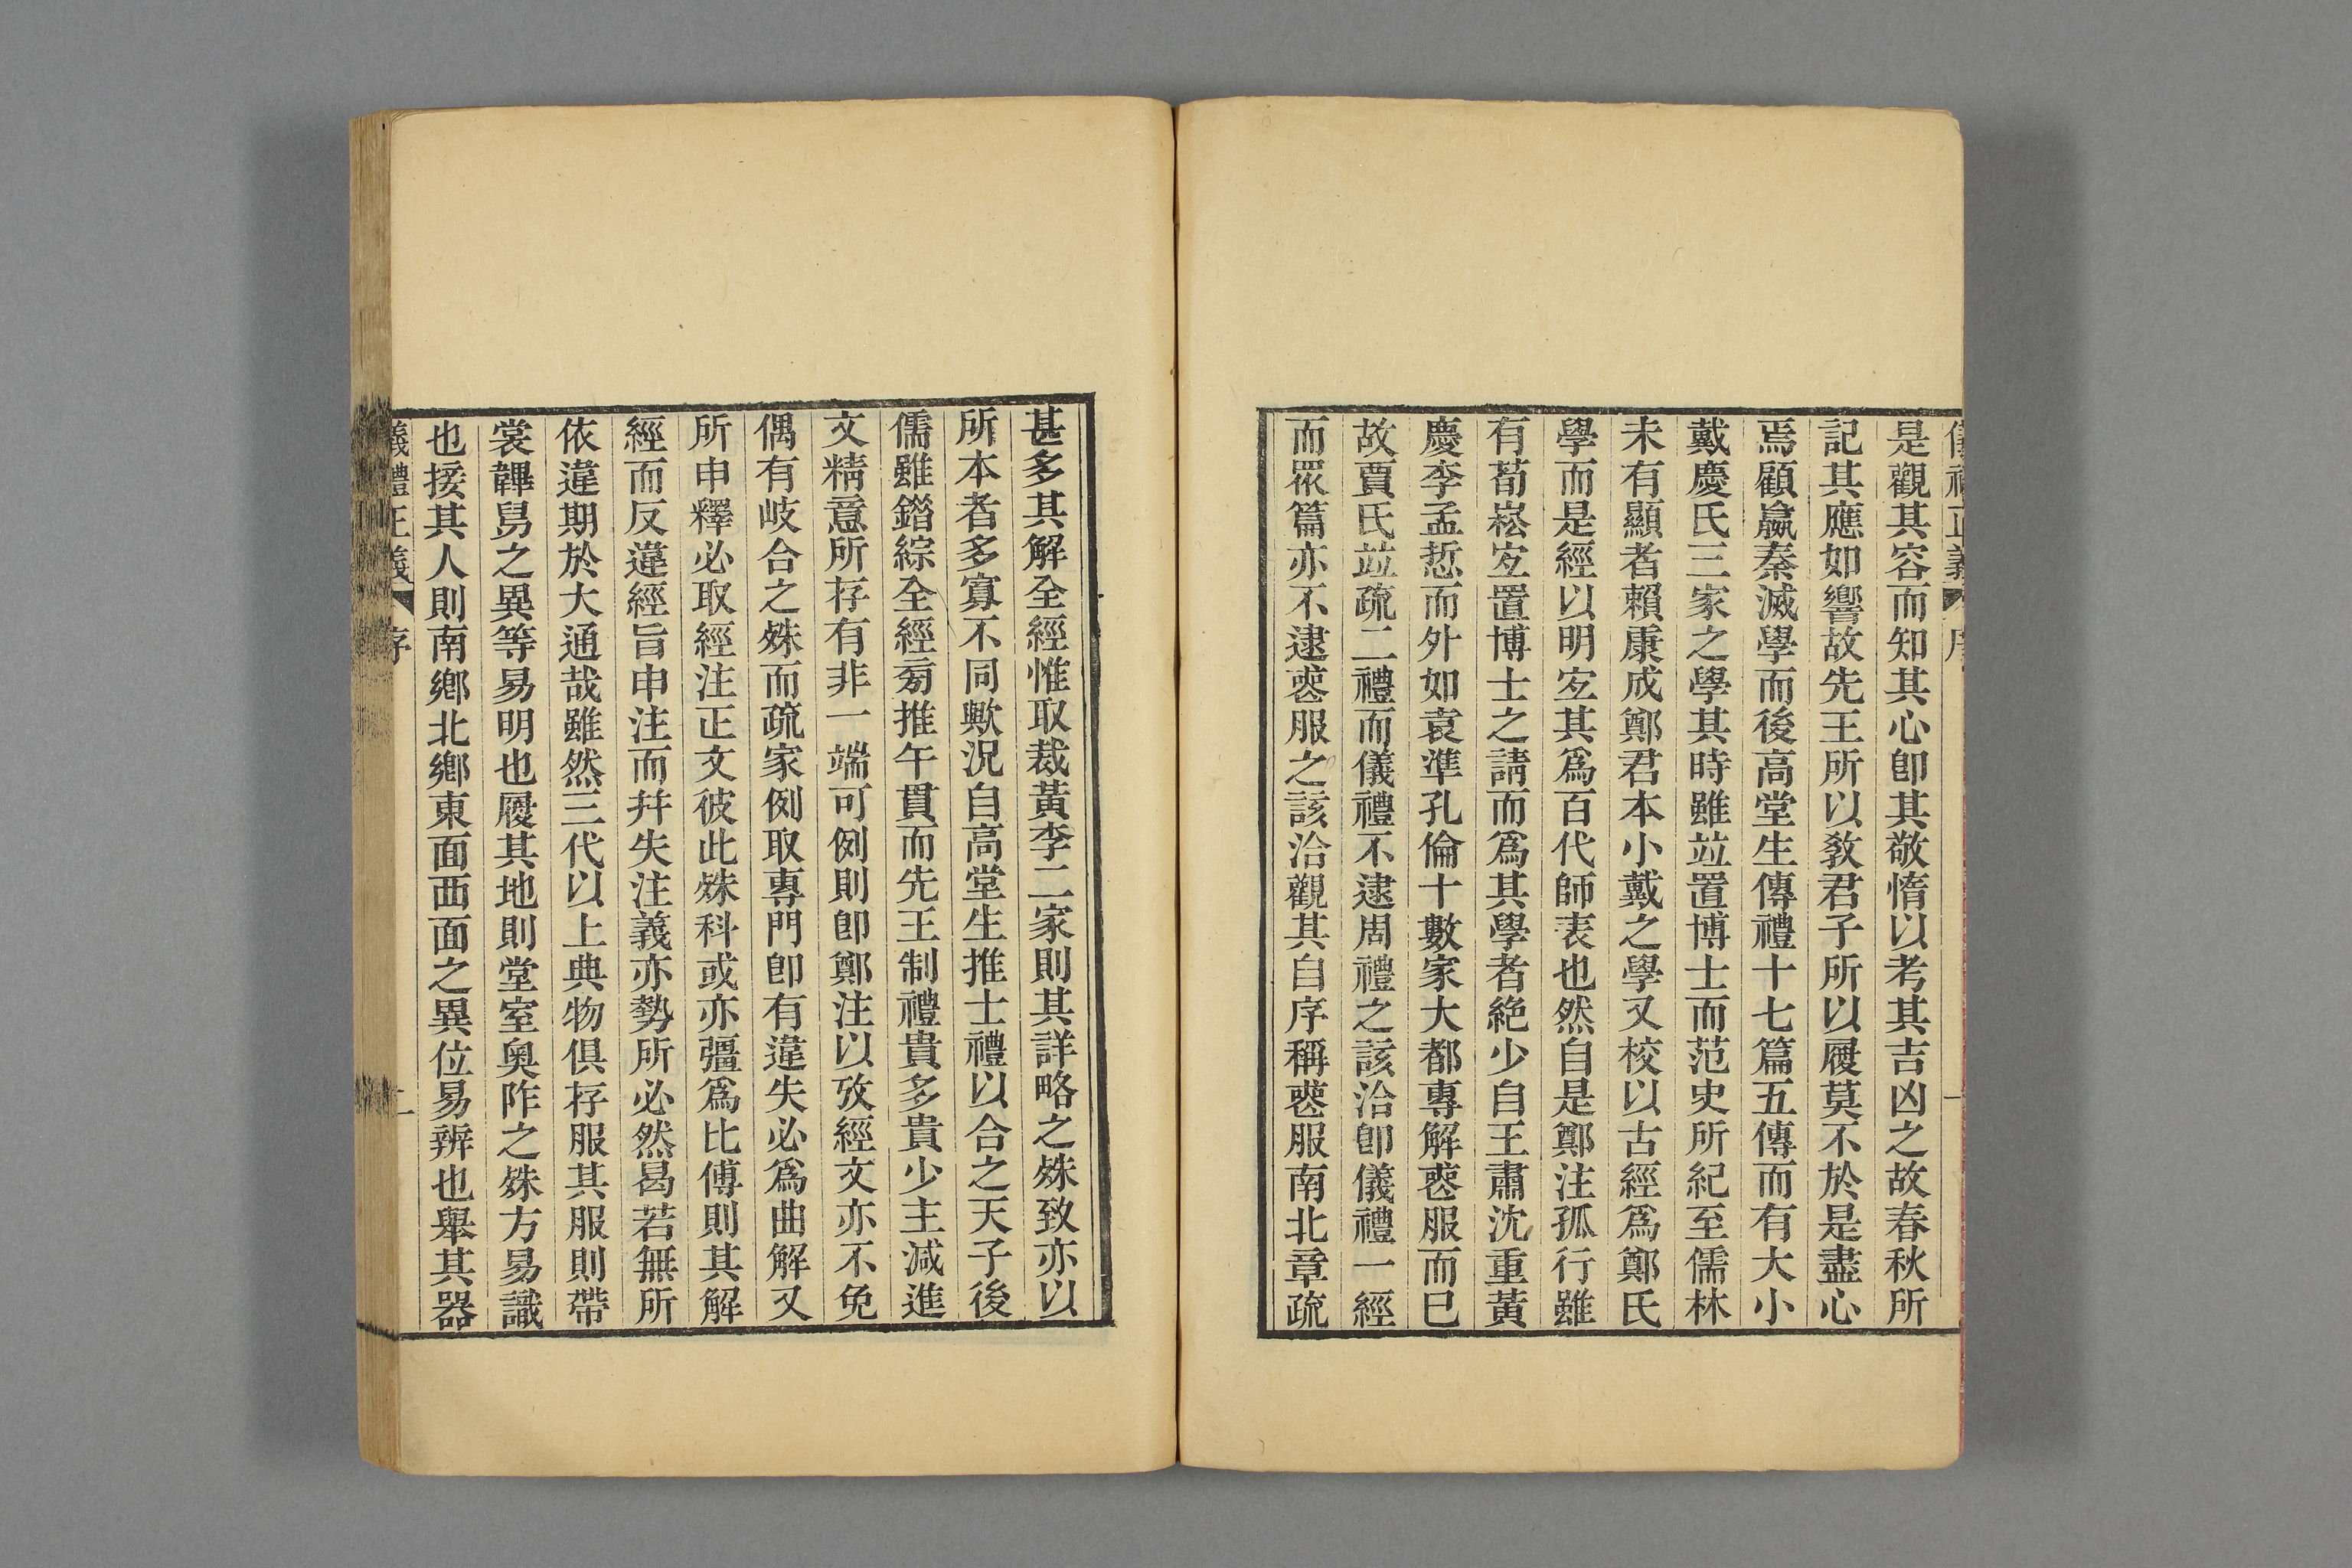 儀禮正義 序 一
是觀其容而知其心卽其敬惰以考其吉凶之故春秋所
記其應如響故先王所以敎君子所以履莫不於是盡心
焉顧嬴秦滅學而後高堂生傳禮十七篇五傳而有大小
戴慶氏三家之學其時雖竝置博士而范史所紀至儒林
未有顯者賴康成鄭君本小戴之學又校以古經爲鄭氏
學而是經以明㝎其爲百代師表也然自是鄭注孤行雖
有荀崧㝎置博士之請而爲其學者絶少自王肅沈重黃
慶李孟悊而外如袁準孔倫十數家大都專解䘮服而巳
故賈氏竝疏二禮而儀禮不逮周禮之該洽卽儀禮一經
而眾篇亦不逮䘮服之該洽觀其自序稱䘮服南北章疏
甚多其解全經惟取裁黃李二家則其詳略之殊致亦以
所本者多寡不同歟況自高堂生推士禮以合之天子後
儒雖鐕綜全經㫄推午貫而先王制禮貴多貴少主減進
文精意所存有非一端可例則卽鄭注以攷經文亦不免
偶有岐合之殊而疏家例取專門卽有違失必爲曲解又
所申釋必取經注正文彼此殊科或亦彊爲比傅則其解
經而反違經旨申注而幷失注義亦勢所必然曷若無所
依違期於大通哉雖然三代以上典物俱存服其服則帶
裳韠舄之異等易明也履其地則堂室奧阼之殊方易識
也接其人則南鄉北鄉東面西面之異位易辨也舉其器
儀禮正義 序 二